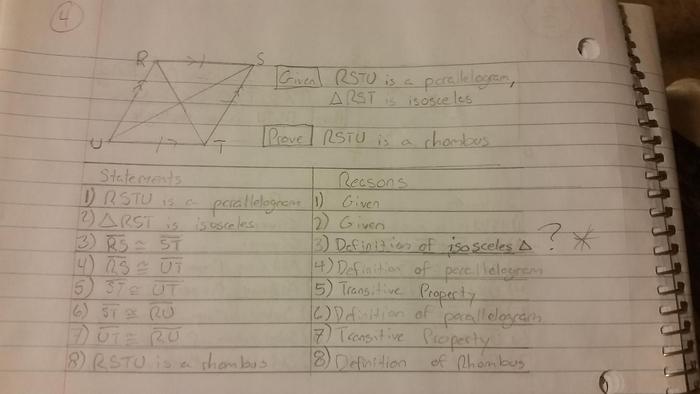 4
R S
U T
Given RSTU is a parallelogram,
△RST is isosceles
Prove RSTU is a rhombus
Statements Reasons
1) RSTU is a parallelogram 1) Given
2) △RST is isosceles 2) Given
3) RS ≅ ST 3) Definition of isosceles △ ? *
4) RS ≅ UT 4) Definition of parallelogram
5) ST ≅ UT 5) Transitive Property
6) ST ≅ RU 6) Definition of parallelogram
7) UT ≅ RU 7) Transitive Property
8) RSTU is a rhombus 8) Definition of Rhombus